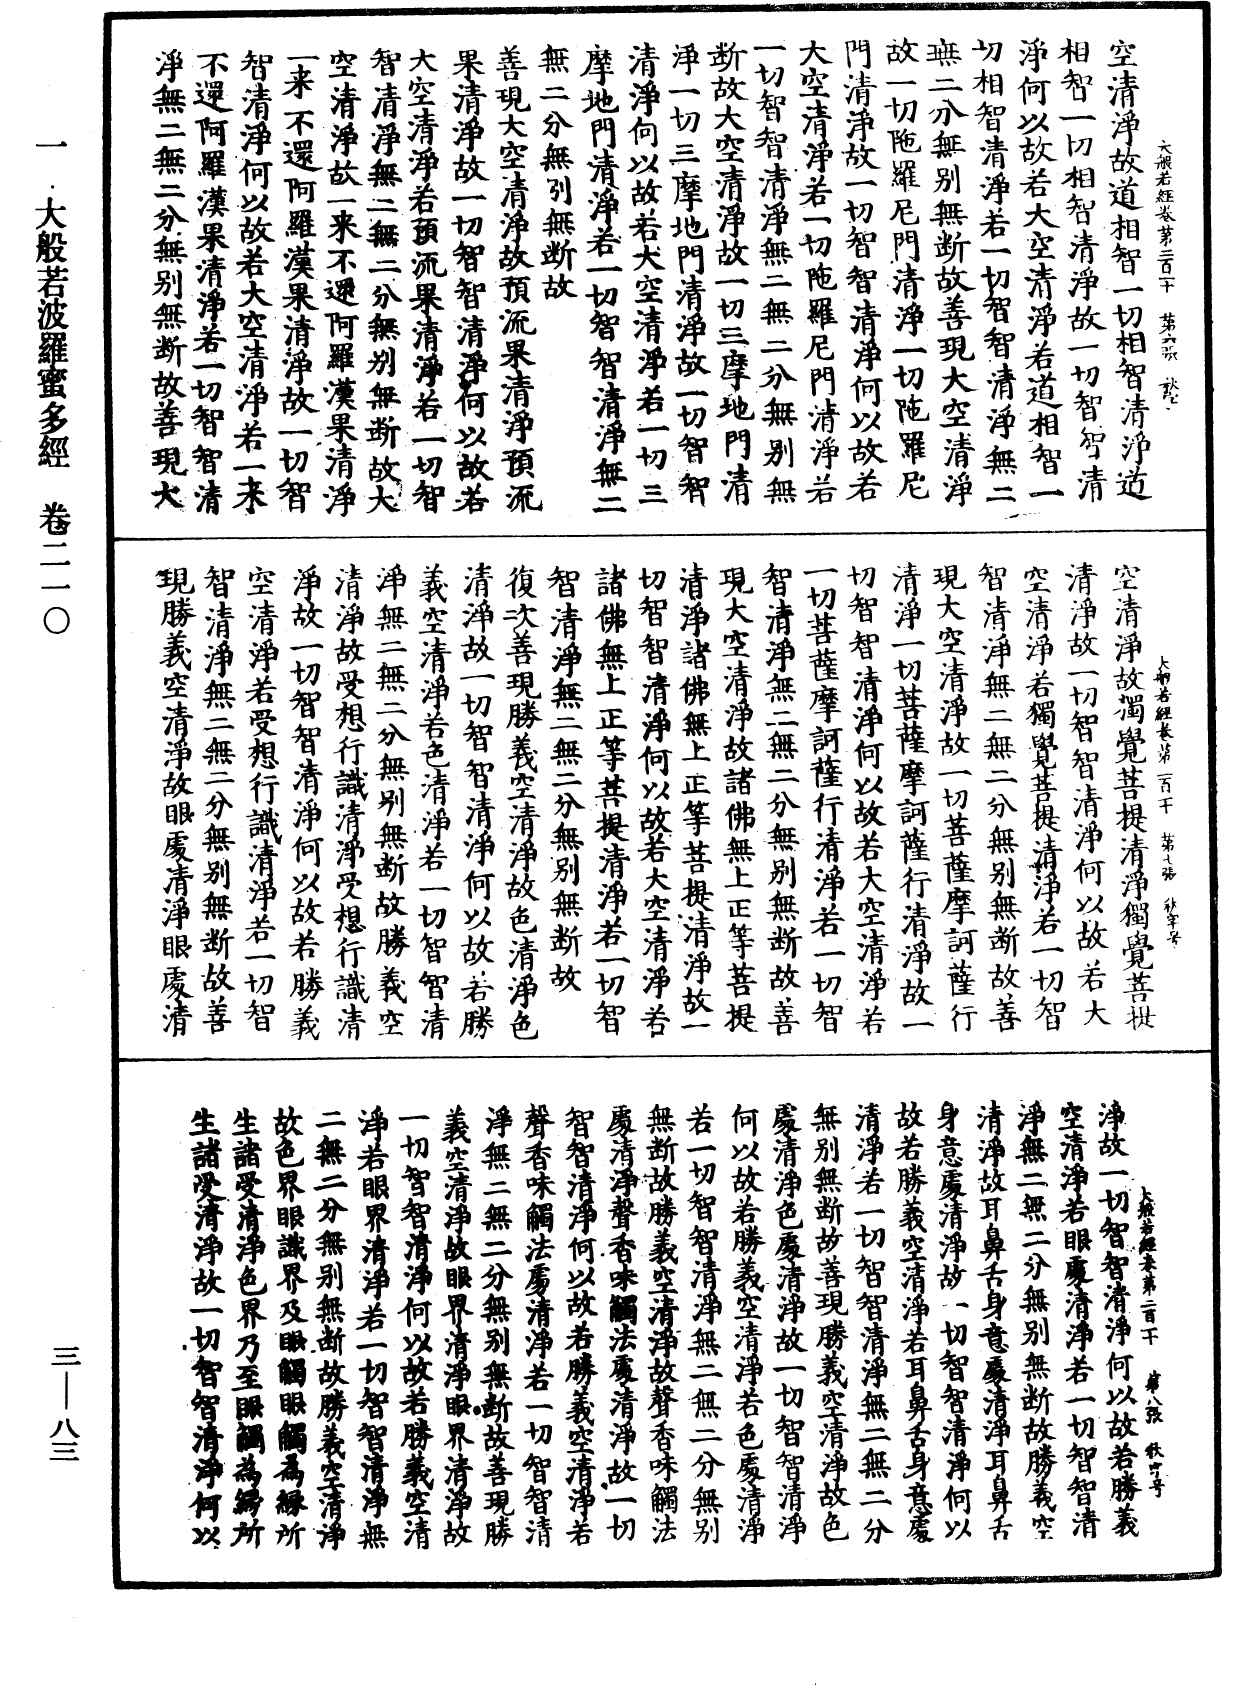 大般若經卷第二百一十　第六張
空清淨故道相智一切相智清淨道
相智一切相智清淨故一切智智清
淨何以故若大空清淨若道相智一
切相智清淨若一切智智清淨無二
無二分無別無斷故善現大空清淨
故一切陁羅尼門清淨一切陁羅尼
門清淨故一切智智清淨何以故若
大空清淨若一切陁羅尼門清淨若
一切智智清淨無二無二分無別無
斷故大空清淨故一切三摩地門清
淨一切三摩地門清淨故一切智智
清淨何以故若大空清淨若一切三
摩地門清淨若一切智智清淨無二
無二分無別無斷故
善現大空清淨故預流果清淨預流
果清淨故一切智智清淨何以故若
大空清淨若預流果清淨若一切智
智清淨無二無二分無別無斷故大
空清淨故一来不還阿羅漢果清淨
一来不還阿羅漢果清淨故一切智
智清淨何以故若大空清淨若一来
不還阿羅漢果清淨若一切智智清
淨無二無二分無別無斷故善現大
大般若經卷第二百一十　第七張　秋字号
空清淨故獨覺菩提清淨獨覺菩提
清淨故一切智智清淨何以故若大
空清淨若獨覺菩提清淨若一切智
智清淨無二無二分無別無斷故善
現大空清淨故一切菩薩摩訶薩行
清淨一切菩薩摩訶薩行清淨故一
切智智清淨何以故若大空清淨若
一切菩薩摩訶薩行清淨若一切智
智清淨無二無二分無別無斷故善
現大空清淨故諸佛無上正等菩提
清淨諸佛無上正等菩提清淨故一
切智智清淨何以故若大空清淨若
諸佛無上正等菩提清淨若一切智
智清淨無二無二分無別無斷故
復次善現勝義空清淨故色清淨色
清淨故一切智智清淨何以故若勝
義空清淨若色清淨若一切智智清
淨無二無二分無別無斷故勝義空
清淨故受想行識清淨受想行識清
淨故一切智智清淨何以故若勝義
空清淨若受想行識清淨若一切智
智清淨無二無二分無別無斷故善
現勝義空清淨故眼處清淨眼處清
大般若經卷第二百一十　第八張　秋字号
淨故一切智智清淨何以故若勝義
空清淨若眼處清淨若一切智智清
淨無二無二分無別無斷故勝義空
清淨故耳鼻舌身意處清淨耳鼻舌
身意處清淨故一切智智清淨何以
故若勝義空清淨若耳鼻舌身意處
清淨若一切智智清淨無二無二分
無別無斷故善現勝義空清淨故色
處清淨色處清淨故一切智智清淨
何以故若勝義空清淨若色處清淨
若一切智智清淨無二無二分無別
無斷故勝義空清淨故聲香味觸法
處清淨聲香味觸法處清淨故一切
智智清淨何以故若勝義空清淨若
聲香味觸法處清淨若一切智智清
淨無二無二分無別無斷故善現勝
義空清淨故眼界清淨眼界清淨故
一切智智清淨何以故若勝義空清
淨若眼界清淨若一切智智清淨無
二無二分無別無斷故勝義空清淨
故色界眼識界及眼觸眼觸為緣所
生諸受清淨色界乃至眼觸為緣所
生諸受清淨故一切智智清淨何以
一·大般若波羅蜜多經　卷二一〇
三—八三